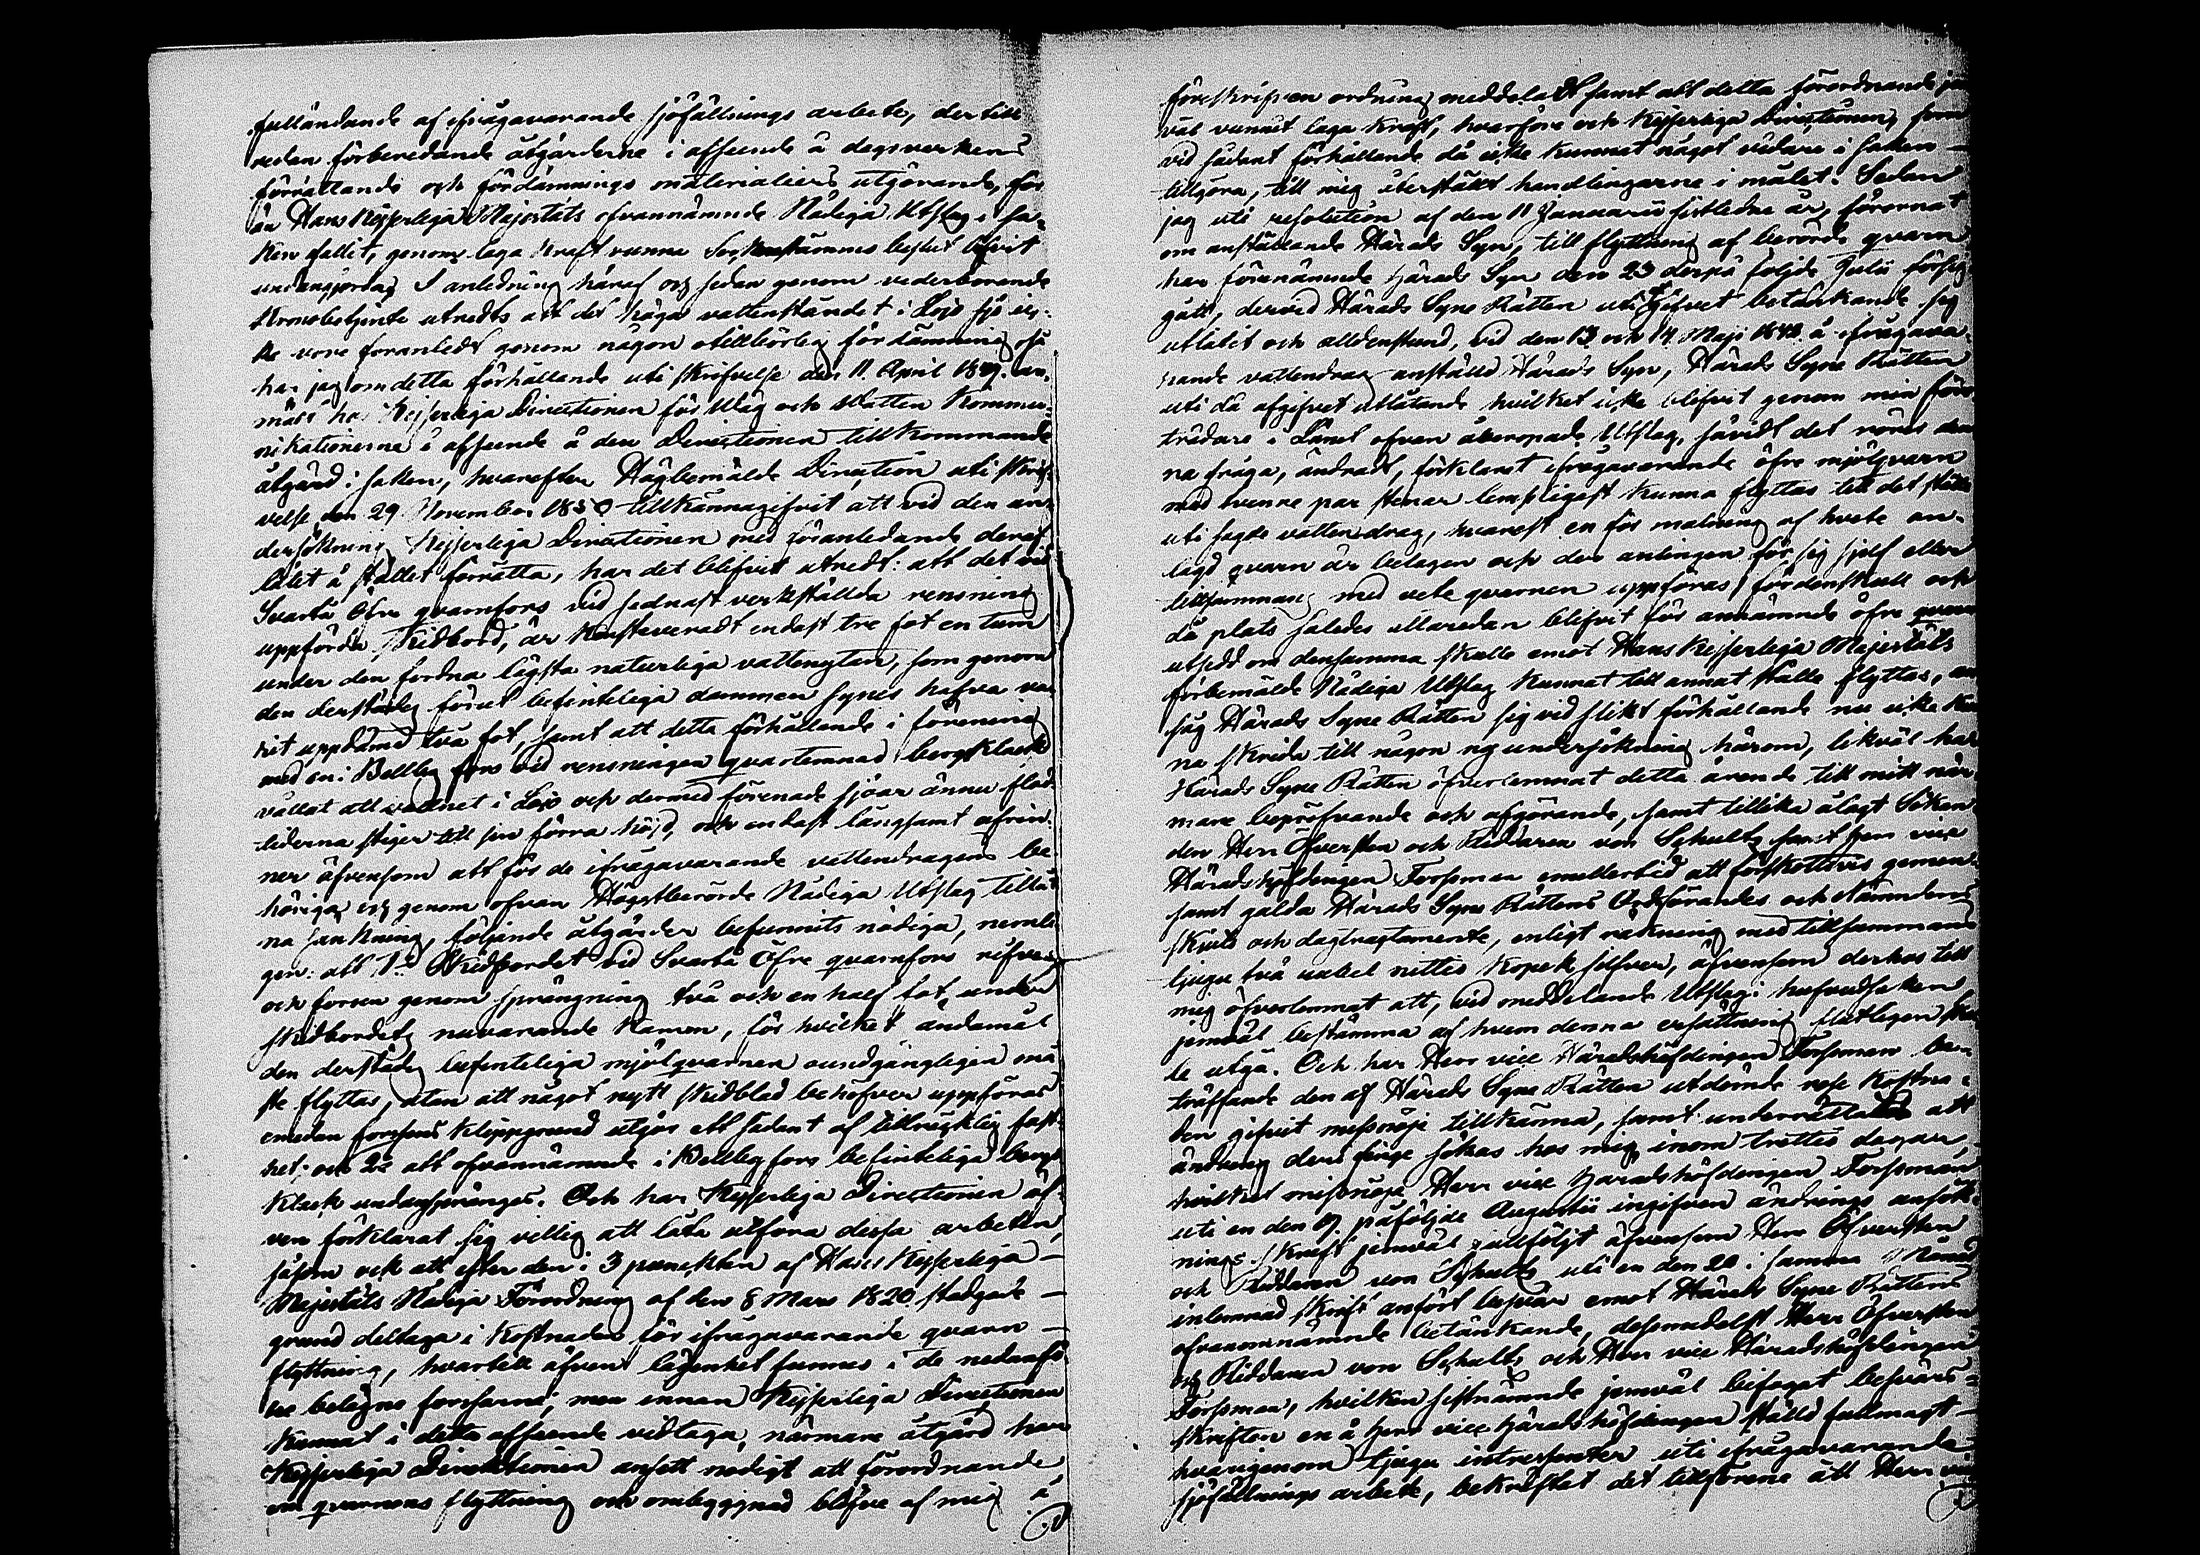 fulländande af ifrågavarande sjöfällnings arbete, der till
redan förberedande åtgärderne i afseende å dagsverkens
förrättande och fördämnings materialiers utgörande, för
än Hans Kejserliga Majestäts ofvannämnde Nådiga Utslag i sa-
ken fallit, genom laga kraft vunne Sockenstämmo beslut blifvit
undangjorda. I anledning häraf och sedan genom vederbörande
Kronobetjente utredts att det höga vattenståndet i Lojo sjö ic-
ke vore föranledt genom någon otillbörlig fördämning, så
har jag om detta förhållande uti skrifvelse den 11. April 1849. an-
mält hos Kejserliga Directionen för Väg och Vatten Kommu-
nikationerne i afseende å den Directionen tillkommande
åtgärd i saken, hvarefter Högbemälde Direction uti skrif-
velse den 29 November 1850 tillkännagifvit att vid den un-
dersökning, Kejserliga Directionen med föranledande deraf
låtit å stället förrätta, har det blifvit utredt: att det vid
Svartå Öfre qvarnfors vid sednast verkställda rensning
uppförda skidbord, är konstrueradt endast tre fot en tum
under den fordna lägsta naturliga vattenytan, som genom
den derstädes förut befinteliga dammen synes hafva va-
rit uppdämd två fot, samt att detta förhållande i förening
med en i Bällby fors vid rensningen qvarlemnad bergklack
vållat att vattnet i Lojo och dermed förenade sjöar ännu flod-
tiderna stiger till sin förra höjd, och endast långsamt afrin-
ner äfvensom att för de ifrågavarande vattendragens be-
höriga och genom ofvan Högstberörde Nådiga Utslag tillåt-
na sänkning, följande åtgärder befunnits nödiga, nemli-
gen: att 1:o Skidbordet vid Svartå Öfre qvarnfors rifves
och forsen genom sprängning två och en half fot under
skidbordets nuvarande kamm, för hvilket ändamål
den derstädes befinteliga mjölqvarnen oundgängligen må-
ste flyttas, utan att något nytt skidblad behöfver uppföras
emedan forssens klippgrund utgör ett sådant af tillräcklig fast-
het; och 2:o att ofvannämnde i Bällby fors befinteliga bergs
klack undanspränges. Och har Kejserliga Directionen äf-
ven förklarat sig villig att låta utföra dessa arbeten,
såsom ock att efter den i 3 punkten af Hans Kejserliga
Majestäts Nådiga Förordning af den 8 Mars 1820 stadgade
grund deltaga i kostnaden för ifrågavarande qvarn
flyttning, hvartill äfven lägenhet funnes i de nedanfö-
re belägne forsarne, men innan Kejserliga Directionen
kunnat i detta afseende vidtaga, närmare åtgärd har
Kejserliga Directionen ansett nödigt att förordnande
om qvarnens flyttning och ombyggnad blefve af mig i
föreskrifven ordning meddeladt samt att detta förordnande jem
väl vunnit laga kraft, hvarföre ock Kejserliga Directionen, som
vid sådant förhållande då icke kunnat något vidare i saken
tillgöra, till mig öfverstäldt handlingarne i målet. Sedan
jag uti resolution af den 11 Januarii sistledne år, förornat
om anställande Härads Syn, till flyttning af berörde qvarn
har förenämnde Härads Syn den 23 derpå följde Julii försig-
gått, dervid Härads Syne Rätten uti afgifvet betänkande sig
utlåtit och alldenstund, vid den 13 och 14 Maji 1842 å ifrågava-
rande vattendrag anställd Härads Syn, Härads Syne Rätten
uti då afgifvet utlåtande hvilket icke blifvit genom min före-
trädare i Länet ofvan åberopade Utslag, såvidt det rörer den
na fråga, ändradt, förklarat ifrågavarande öfre mjölqvarn
med tvenne par stenar lempligast kunna flyttas till det ställe
uti sagde vattendrag, hvarest en för malning af hvete an-
lagd qvarn är belägen och der antingen för sig sjelf eller
tillsammans med vete qvarnen uppföras, fördenskull och
då plats således allaredan blifvit för omnämnde öfre qvarn
utsedd om densamma skulle emot Hans Kejserliga Majestäts
förbemälde Nådiga Utslag kunnat till annat ställe flyttas, an
såg Härads Syne Rätten sig vid slikt förhållande nu icke kun
na skrida till någon ny undersökning härom, likväl har
Härads Syne Rätten öfverlemnat detta ärende till mitt när-
mare bepröfvande och afgörande, samt tillika ålagt Sökan
den Herr Öfversten och Riddaren von Schultz samt Herr vice
Häradshöfdingen Forssman emellertid att förskottsvis gemen-
samt gälda Härads Syne Rättens Ordförandes och Nämndens
skjuts och dagtraktamente, enligt räkning med tillsammans
tjugu två rubel nittio kopek silfver, äfvensom derhos till
mig öfverlemnat att, vid meddelande Utslag i hufvudsaken
jemväl bestämma af hvem denna ersättning slutligen skul
le utgå. Och har Herr vice Häradshöfdingen Forssman be-
träffande den af Härads Syne Rätten utdömde rese kostna-
den gifvit missnöje tillkänna, samt underrättades att
ändring deri finge sökas hos mig inom trettio dagar,
hvilket missnöje Herr vice Häradshöfdingen Forssman
uti en den 19. påföljde Augustii ingifven ändrings ansök-
nings skrift jemväl fullföljt äfvensom Herr Öfversten
och Riddaren von Schultz uti en den 20 i samma Månad
inlemnad skrift anfört besvär emot Härads Syne Rättens
ofvannämnde betänkande, dessmedelst Herr Öfversten
och Riddaren von Schultz och Herr vice Häradshöfdingen
Forssman, hvilken sistnämnde jemväl bifogat besvärs-
skriften en å Herr vice Häradshöfdingen ställd fullmagt
hvarigenom tjugu intressenter uti ifrågavarande
sjöfällnings arbete, bekräftat det tillförene att Herr vice